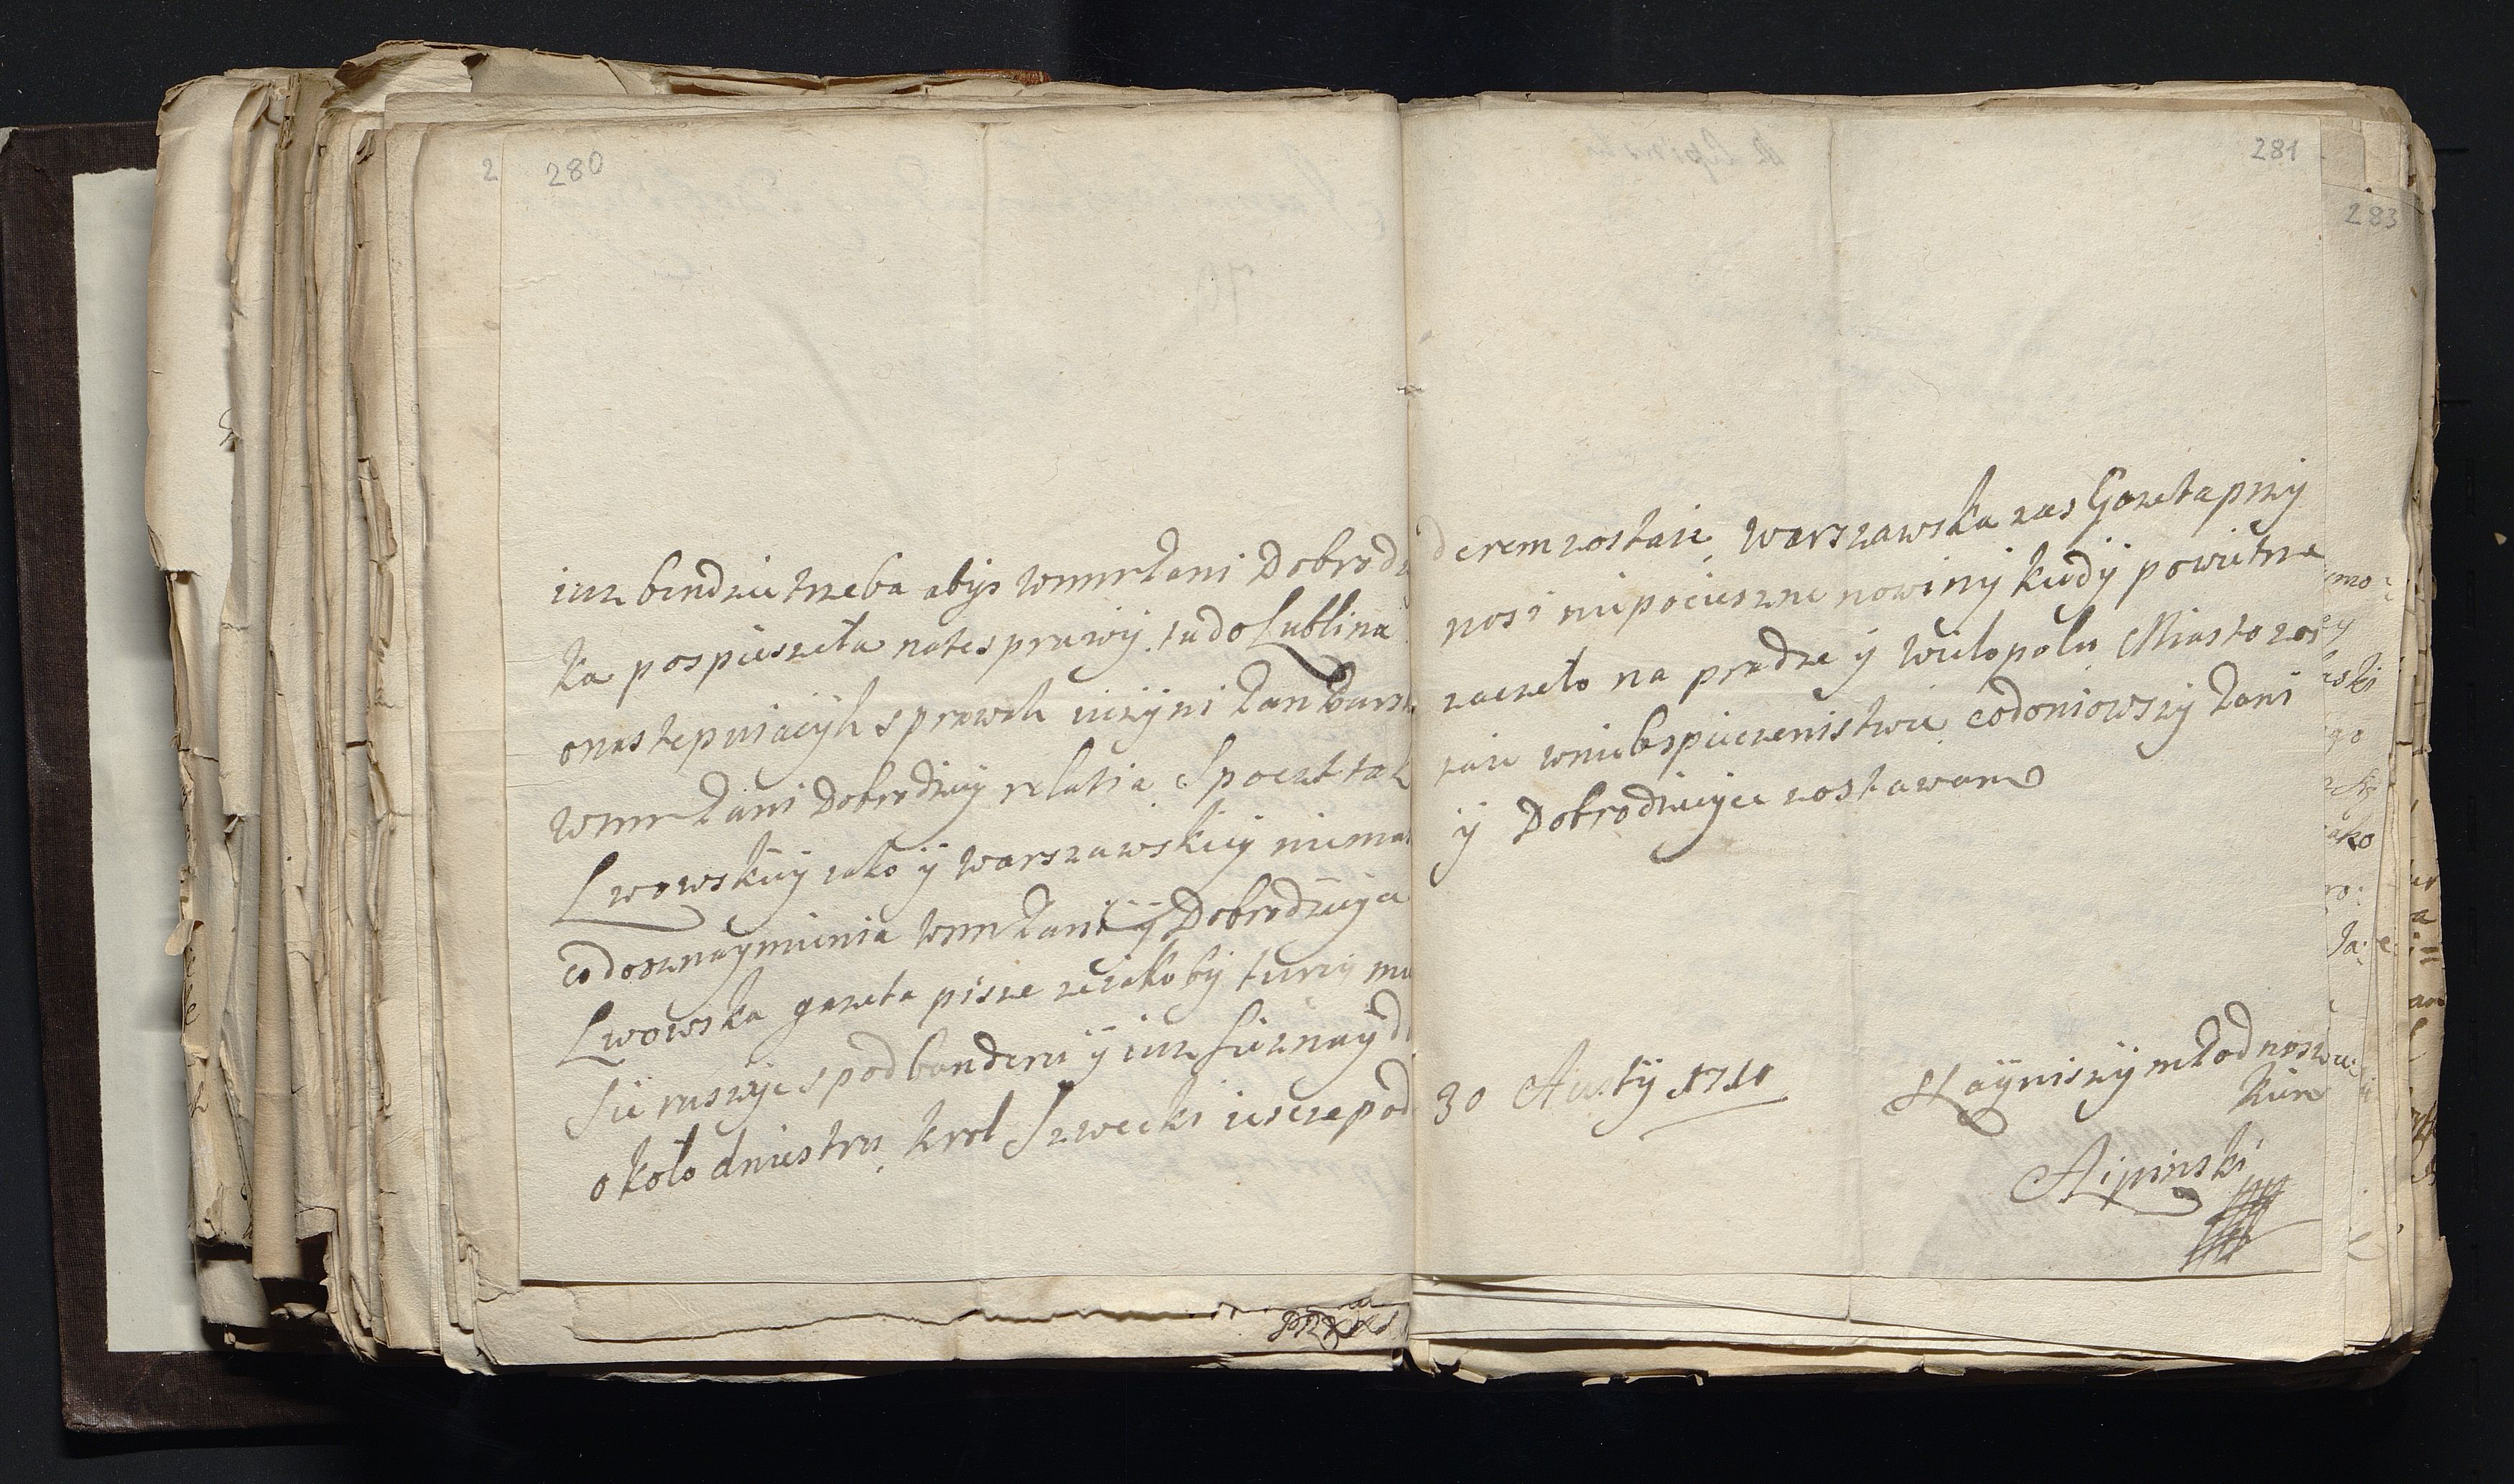 280
iuz bendzie trzeba abys wmm Pani Dobrodzi
ka pospieszeła nates prawy. za do Lublina
onastepuiacyh sprawch uczyni Pan Burz
wmm Pani Dobrodziey relatia Spoczt tak
Lwowskiey iako y warszawskiey niema
co doznaymienia wmm Paniey Dobrodzieyce
Lwowska gazeta pisze ze iakoby turcy mu
sie ruszyc spod banderu y iuz sie znayd
około dniestru krol Szwecki iescze pod
281
derem zostaie warszawska zas Gazeta przy
nosi niepocieszne nowiny kiedy powietrze
zaczeło na pradze y wielopolu Miasto zos
taie wniebespieczenistwie codoniowszy Pani
y Dobrodzieyce zostawam
30 Austy 1710
Nayniszy młod nosze:
kiem
ALipinski
283
2